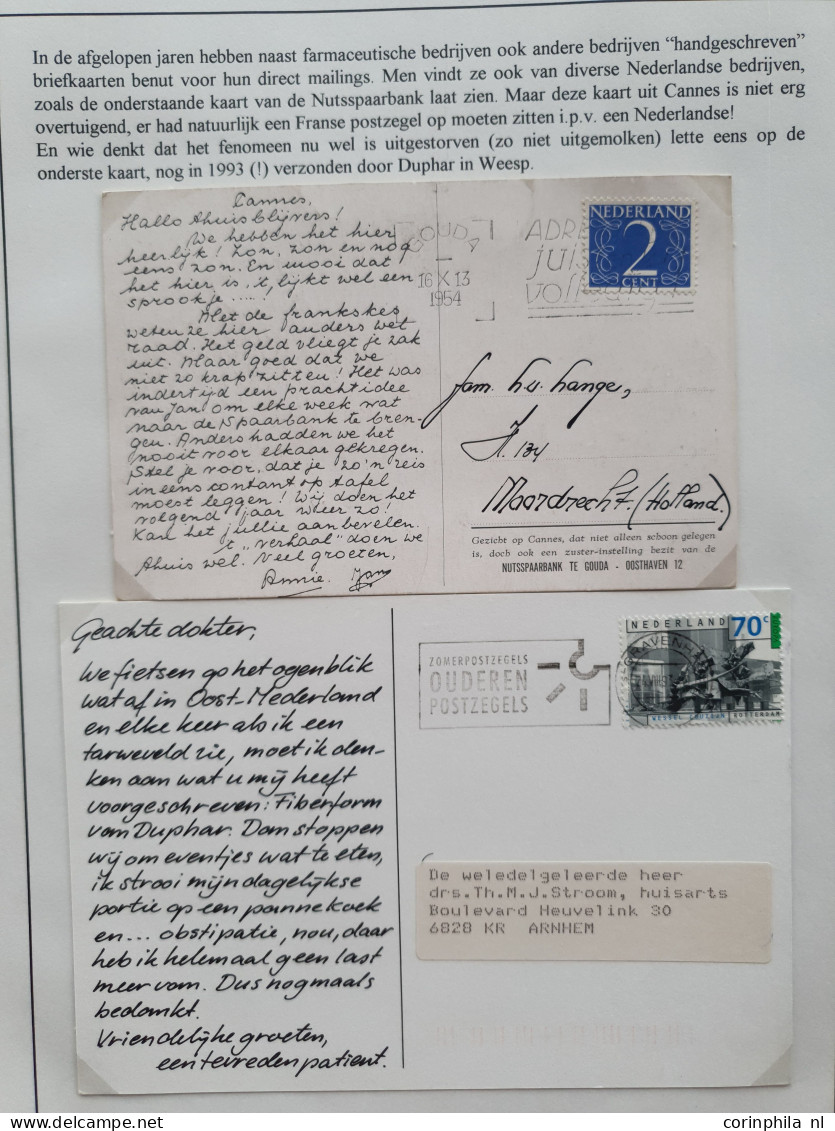 In de afgelopen jaren hebben naast farmaceutische bedrijven ook andere bedrijven “handgeschreven”
briefkaarten benut voor hun direct mailings. Men vindt ze ook van diverse Nederlandse bedrijven,
zoals de onderstaande kaart van de Nutsspaarbank laat zien. Maar deze kaart uit Cannes is niet erg
overtuigend, er had natuurlijk een Franse postzegel op moeten zitten i.p.v. een Nederlandse!
En wie denkt dat het fenomeen nu wel is uitgestorven (zo niet uitgemolken) lette eens op de
onderste kaart, nog in 1993 (!) verzonden door Duphar in Weesp.
Cannes,
Hallo thuisblijvers!
We hebben het hier
heerlijk! Zon, zon en nog
eens zon. En mooi dat
het hier is, 't lijkt wel een
sprookje.....!
Met de frankskes
weten ze hier anders wel
raad. Het geld vliegt je zak
uit. Maar goed dat we
niet zo krap zitten! Het was
indertijd een prachtidee
van Jan om elke week wat
naar de Spaarbank te bren-
gen. Anders hadden we het
nooit voor elkaar gekregen.
Stel je voor, dat je zo'n reis
ineens contant op tafel
moest leggen! Wij doen het
volgend jaar weer zo!
Kan het jullie aanbevelen.
't "verhaal" doen we
thuis wel. Veel groeten,
Annie. Jan
GOUDA
16 X 13
1954
ADRE
juis
volle
NEDERLAND
2
CENT
fam. h.v. Lange,
K. 134
Moordrecht. (Holland.)
Gezicht op Cannes, dat niet alleen schoon gelegen
is, doch ook een zuster-instelling bezit van de
NUTSSPAARBANK TE GOUDA - OOSTHAVEN 12
Geachte dokter,
We fietsen op het ogenblik
wat af in Oost-Nederland
en elke keer als ik een
tarweveld zie, moet ik den-
ken aan wat u mij heeft
voorgeschreven: Fiberform
van Duphar. Dan stoppen
wij om eventjes wat te eten,
ik strooi mijn dagelijkse
portie op een pannekoek
en... obstipatie, nou, daar
heb ik helemaal geen last
meer van. Dus nogmaals
bedankt.
Vriendelijke groeten,
een tevreden patient.
ZOMERPOSTZEGELS
OUDEREN
POSTZEGELS
'S-GRAVENH
NEDERLAND
70c
WESSEL COUZIJN ROTTERDAM
De weledelgeleerde heer
drs.Th.M.J.Stroom, huisarts
Boulevard Heuvelink 30
6828 KR ARNHEM
www.corinphila.nl / corinphila nl